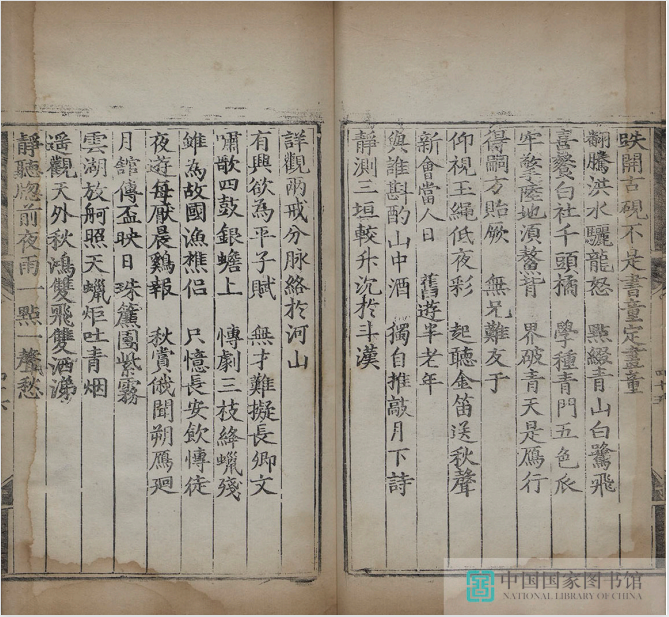 跌開古硯不是書童定畫童
翻騰洪水驪龍怒　點綴青山白鷺飛
喜餐白社千頭橘　學種青門五色瓜
牢擎陸地須鰲背　界破青天是鴈行
得嗣方貽厥　無兄難友于
仰視玉繩低夜彩　起聽金笛送秋聲
新會當人日　舊遊半老年
與誰斟酌山中酒　獨自推敲月下詩
靜測三垣較升沉於斗漢
詳觀兩戒分脉絡於河山
有興欲為平子賦　無才難擬長卿文
嘯歌四鼓銀蟾上　慱劇三枝絳蠟殘
雖為故國漁樵侣　只憶長安飲慱徒
夜遊每厭晨鷄報　秋賞俄聞朔鴈廻
月館傳盃映日珠簾圍紫霧
雲湖放舸照天蠟炬吐青烟
遥觀天外秋鴻雙飛雙洒涕
靜聽牕前夜雨一點一聲愁
中国国家图书馆
NATIONAL LIBRARY OF CHINA